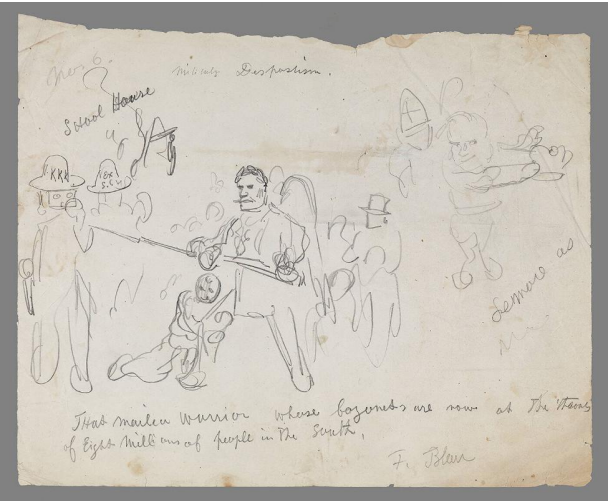 Military Despotism.
School House
KKK
Ex
Seymore as
That mailed Warrior whose bayonets are now at The Throats
of Eight Millions of people in The South.
F. Blair